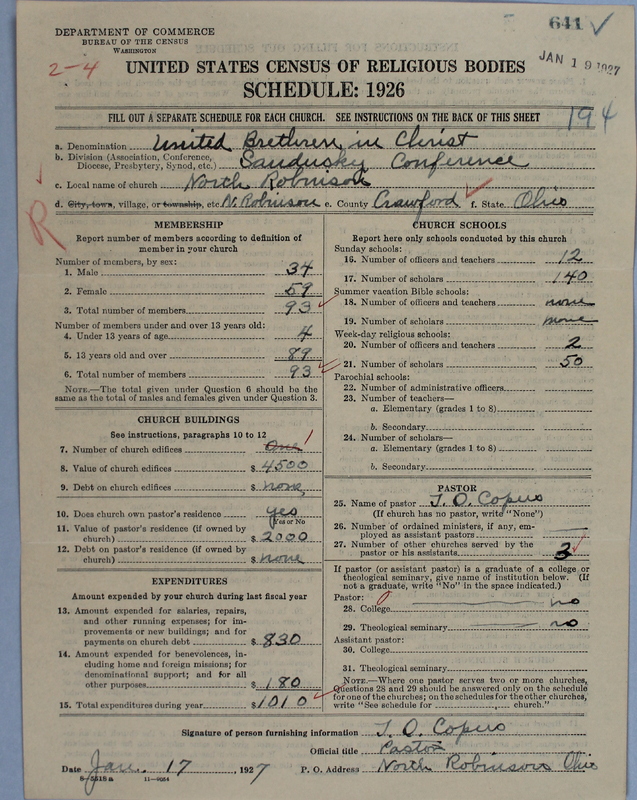 641 ✓
DEPARTMENT OF COMMERCE
BUREAU OF THE CENSUS
WASHINGTON
JAN 19 1927
2-4
UNITED STATES CENSUS OF RELIGIOUS BODIES
SCHEDULE: 1926
FILL OUT A SEPARATE SCHEDULE FOR EACH CHURCH. SEE INSTRUCTIONS ON THE BACK OF THIS SHEET
194
a. Denomination United Brethren in Christ
b. Division (Association, Conference, Diocese, Presbytery, Synod, etc.) Sandusky Conference
c. Local name of church North Robinson
d. City, town, village, or township, etc. N. Robinson e. County Crawford f. State Ohio
R
MEMBERSHIP
Report number of members according to definition of
member in your church
Number of members, by sex:
1. Male 34
2. Female 59
3. Total number of members 93
Number of members under and over 13 years old:
4. Under 13 years of age 4
5. 13 years old and over 89
6. Total number of members 93
NOTE.—The total given under Question 6 should be
same as the total of males and females given under Question 3.
CHURCH BUILDINGS
See instructions, paragraphs 10 to 12
7. Number of church edifices One 1
8. Value of church edifices $ 4500
9. Debt on church edifices $ none
10. Does church own pastor's residence? yes
Yes or No
11. Value of pastor's residence (if owned by
church) $ 2000
12. Debt on pastor's residence (if owned by
church) $ none
EXPENDITURES
Amount expended by your church during last fiscal year
13. Amount expended for salaries, repairs,
and other running expenses; for im-
provements or new buildings; and for
payments on church debt $ 830
14. Amount expended for benevolences, in-
cluding home and foreign missions; for
denominational support; and for all
other purposes $ 180
15. Total expenditures during year $ 1010
CHURCH SCHOOLS
Report here only schools conducted by this church
Sunday schools:
16. Number of officers and teachers 12
17. Number of scholars 140
Summer vacation Bible schools:
18. Number of officers and teachers none
19. Number of scholars none
Week-day religious schools:
20. Number of officers and teachers 2
21. Number of scholars 50
Parochial schools:
22. Number of administrative officers
23. Number of teachers—
a. Elementary (grades 1 to 8)
b. Secondary
24. Number of scholars—
a. Elementary (grades 1 to 8)
b. Secondary
PASTOR
25. Name of pastor T. O. Copus
(If church has no pastor, write "None")
26. Number of ordained ministers, if any, em-
ployed as assistant pastors
27. Number of other churches served by the
pastor or his assistants 3
If pastor (or assistant pastor) is a graduate of a college or
theological seminary, give name of institution below. (If
not a graduate, write "No" in the space indicated.)
Pastor: 0
28. College no
29. Theological seminary no
Assistant pastor:
30. College
31. Theological seminary
NOTE.—Where one pastor serves two or more churches,
Questions 28 and 29 should be answered only on the schedule
for one of the churches; on the schedules for the other churches,
write "See schedule for ................ church."
Signature of person furnishing information T. O. Copus
Official title Pastor
Date Jan. 17, 1927 P. O. Address North Robinson Ohio
11—9054